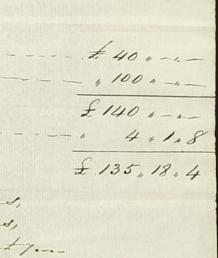 £ 40 " — " —
" 100 " — " —
£ 140 " — " —
" 4 " 1 " 8
£ 135 " 18 " 4
s,
s,